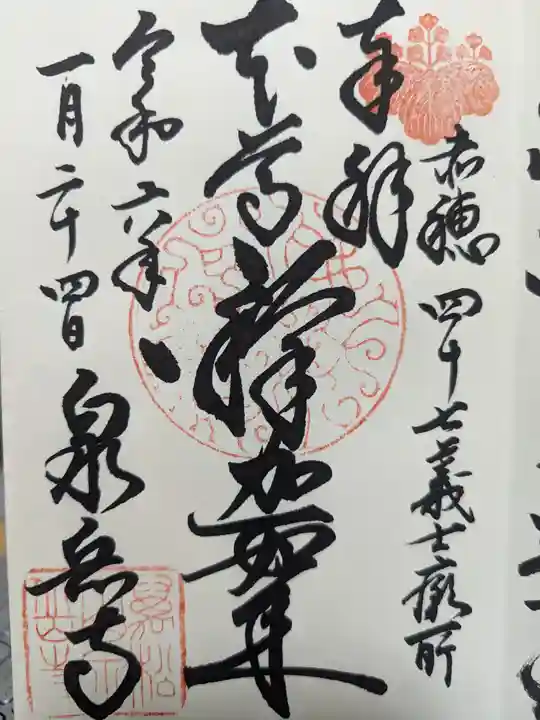 奉拝
赤穂四十七義士廟所
本尊釋迦如来
令和六年
一月二十四日
泉岳寺